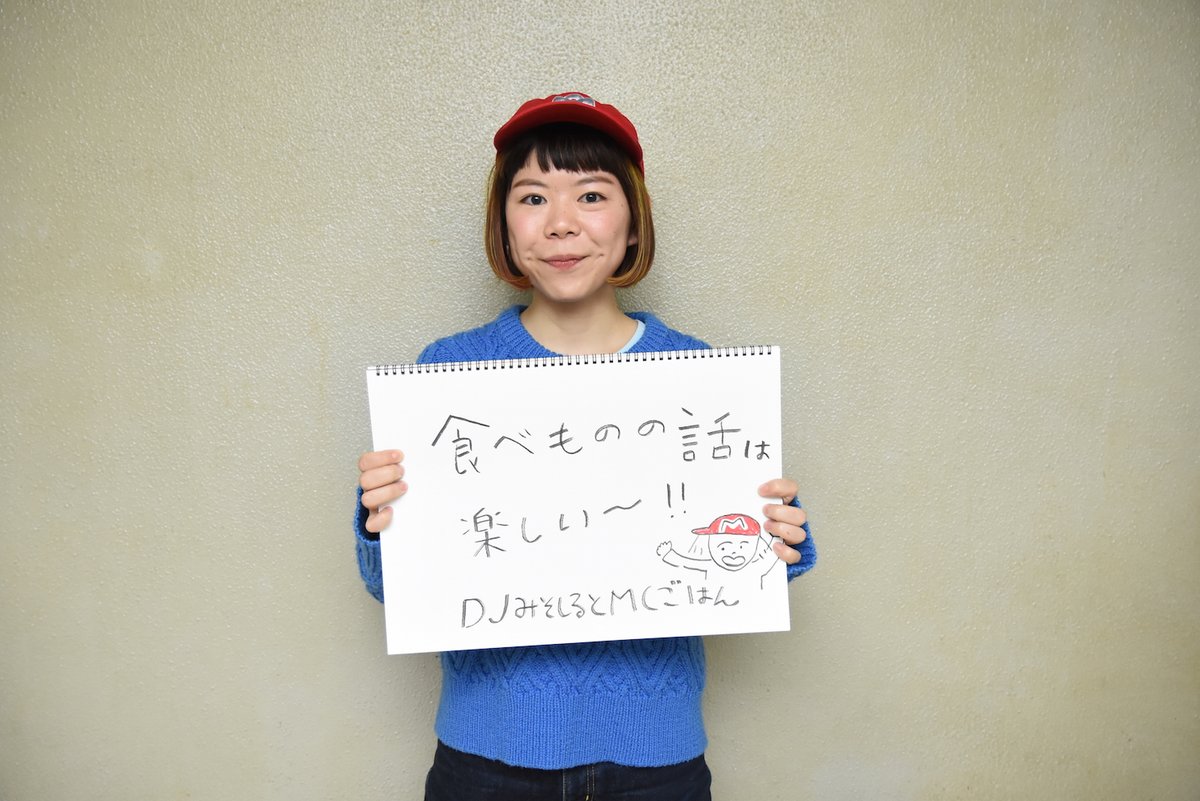 食べものの話は
楽しい〜!!
M
DJみそしるとMCごはん